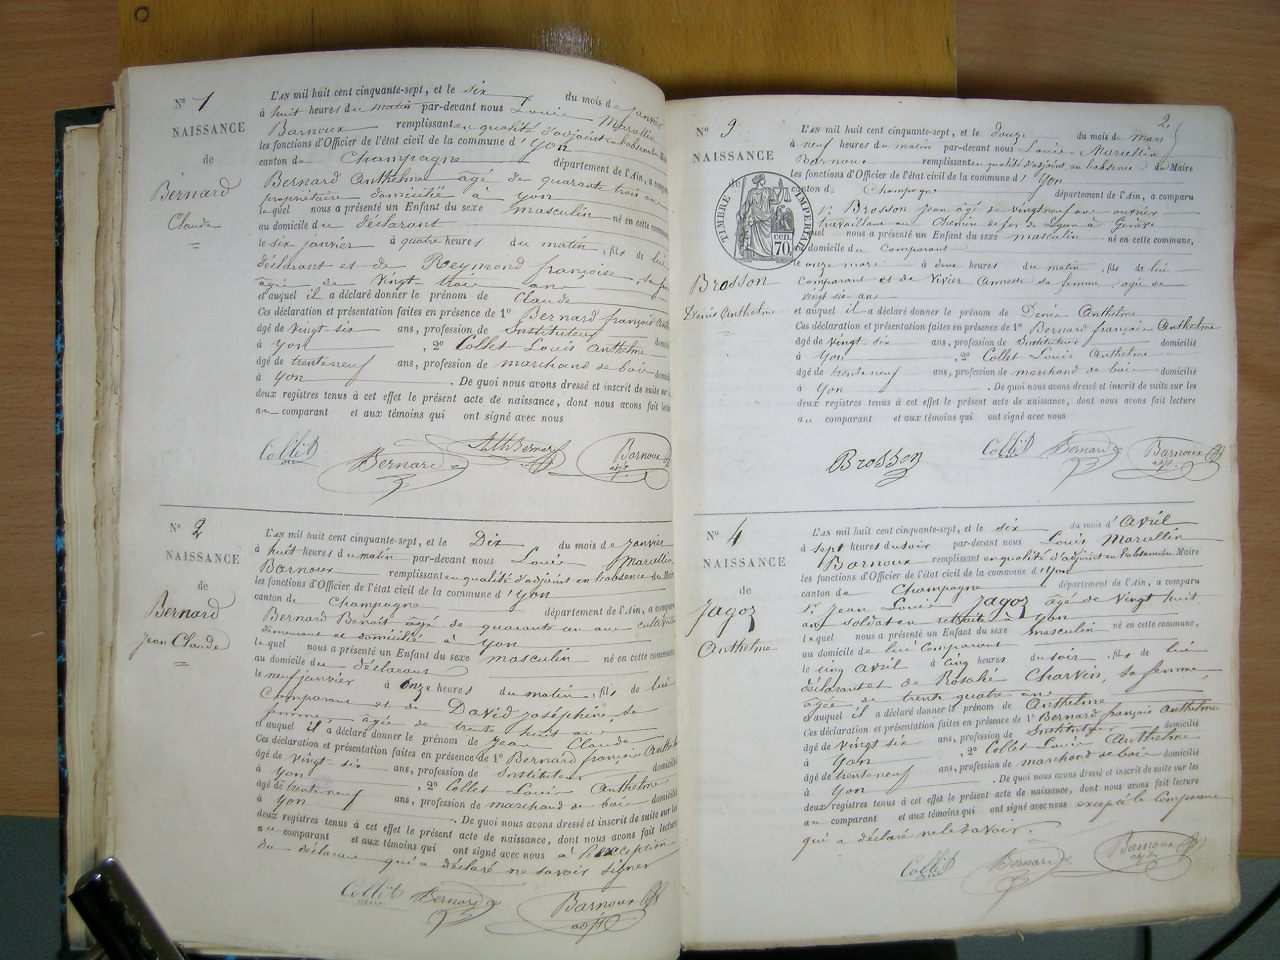 N° 1
NAISSANCE
de
Bernard
Claude
L'AN mil huit cent cinquante-sept, et le six du mois de janvier
à huit heures du matin par-devant nous Louis Marcellin
Barnoux remplissant en qualité d'adjoint en l'absence du Maire
les fonctions d'Officier de l'état civil de la commune d'Yon
canton de Champagne département de l'Ain, a comparu
Bernard Anthelme âgé de quarante trois ans
propriétaire domicilié à Yon
lequel nous a présenté un Enfant du sexe masculin né en cette commune
au domicile du déclarant
le six janvier à quatre heures du matin, fils de lui
déclarant et de Reymond françoise, sa
âgée de vingt-trois ans
et auquel il a déclaré donner le prénom de Claude
Ces déclaration et présentation faites en présence de 1° Bernard françois Anthelme
âgé de vingt six ans, profession de Instituteur domicilié
à Yon , 2° Collet Louis Anthelme
âgé de trente neuf ans, profession de marchand de bois domicilié
à Yon . De quoi nous avons dressé et inscrit de suite sur les
deux registres tenus à cet effet le présent acte de naissance, dont nous avons fait lecture
au comparant et aux témoins qui ont signé avec nous
Collet Bernard Ath Bernard Barnoux adjt
N° 2
NAISSANCE
de
Bernard
Jean Claude
L'AN mil huit cent cinquante-sept, et le Dix du mois de janvier
à huit heures du matin par-devant nous Louis Marcellin
Barnoux remplissant en qualité d'adjoint en l'absence du Maire
les fonctions d'Officier de l'état civil de la commune d'Yon
canton de Champagne département de l'Ain, a comparu
Bernard Benoît âgé de quarante un ans cultivateur
demeurant et domicilié à Yon
lequel nous a présenté un Enfant du sexe masculin né en cette commune
au domicile du déclarant
le neuf janvier à onze heures du matin, fils de lui
Comparant et de David Joséphine, sa
femme, âgée de trente huit ans
et auquel il a déclaré donner le prénom de Jean Claude
Ces déclaration et présentation faites en présence de 1° Bernard françois Anthelme
âgé de vingt-six ans, profession de Instituteur domicilié
à Yon , 2° Collet Louis Anthelme
âgé de trente neuf ans, profession de marchand de bois domicilié
à Yon . De quoi nous avons dressé et inscrit de suite sur les
deux registres tenus à cet effet le présent acte de naissance, dont nous avons fait lecture
au comparant et aux témoins qui ont signé avec nous à l'exception
du déclarant qui a déclaré ne savoir signer
Collet Bernard Barnoux adjt
2
N° 3
NAISSANCE
de
TIMBRE IMPÉRIAL
70 cen.
Brosson
Denis Anthelme
L'AN mil huit cent cinquante-sept, et le douze du mois de mars
à neuf heures du matin par-devant nous Louis Marcellin
Barnoux remplissant en qualité d'adjoint en l'absence du Maire
les fonctions d'Officier de l'état civil de la commune d'Yon
canton de Champagne département de l'Ain, a comparu
Sr Brosson Jean âgé de vingt neuf ans ouvrier
travaillant au Chemin de fer de Lyon à Genève
lequel nous a présenté un Enfant du sexe masculin né en cette commune,
au domicile du Comparant
le onze mars à deux heures du matin, fils de lui
Comparant et de Vivier Annette sa femme, âgée de
vingt six ans
et auquel il a déclaré donner le prénom de Denis Anthelme
Ces déclaration et présentation faites en présence de 1° Bernard françois Anthelme
âgé de vingt six ans, profession de Instituteur domicilié
à Yon , 2° Collet Louis Anthelme
âgé de trente neuf ans, profession de marchand de bois domicilié
à Yon . De quoi nous avons dressé et inscrit de suite sur les
deux registres tenus à cet effet le présent acte de naissance, dont nous avons fait lecture
au comparant et aux témoins qui ont signé avec nous
Brosson Collet Bernard Barnoux adjt
N° 4
NAISSANCE
de
Jagoz
Anthelme
L'AN mil huit cent cinquante-sept, et le six du mois d'Avril
à sept heures du soir par-devant nous Louis Marcellin
Barnoux remplissant en qualité d'adjoint en l'absence du Maire
les fonctions d'Officier de l'état civil de la commune d'Yon
canton de Champagne département de l'Ain, a comparu
Sr Jean Louis Jagoz âgé de vingt huit
ans soldat en retraite à Yon
lequel nous a présenté un Enfant du sexe masculin né en cette commune,
au domicile de lui Comparant
le cinq avril à cinq heures du soir, fils de lui
déclarant et de Rosalie Charvin, sa femme,
âgée de trente quatre ans
et auquel il a déclaré donner le prénom de Anthelme
Ces déclaration et présentation faites en présence de 1° Bernard françois Anthelme
âgé de vingt six ans, profession de Instituteur domicilié
à Yon , 2° Collet Louis Anthelme
âgé de trente neuf ans, profession de marchand de bois domicilié
à Yon . De quoi nous avons dressé et inscrit de suite sur les
deux registres tenus à cet effet le présent acte de naissance, dont nous avons fait lecture
au comparant et aux témoins qui ont signé avec nous excepté le Comparant
qui a déclaré ne le savoir.
Collet Bernard Barnoux adjt